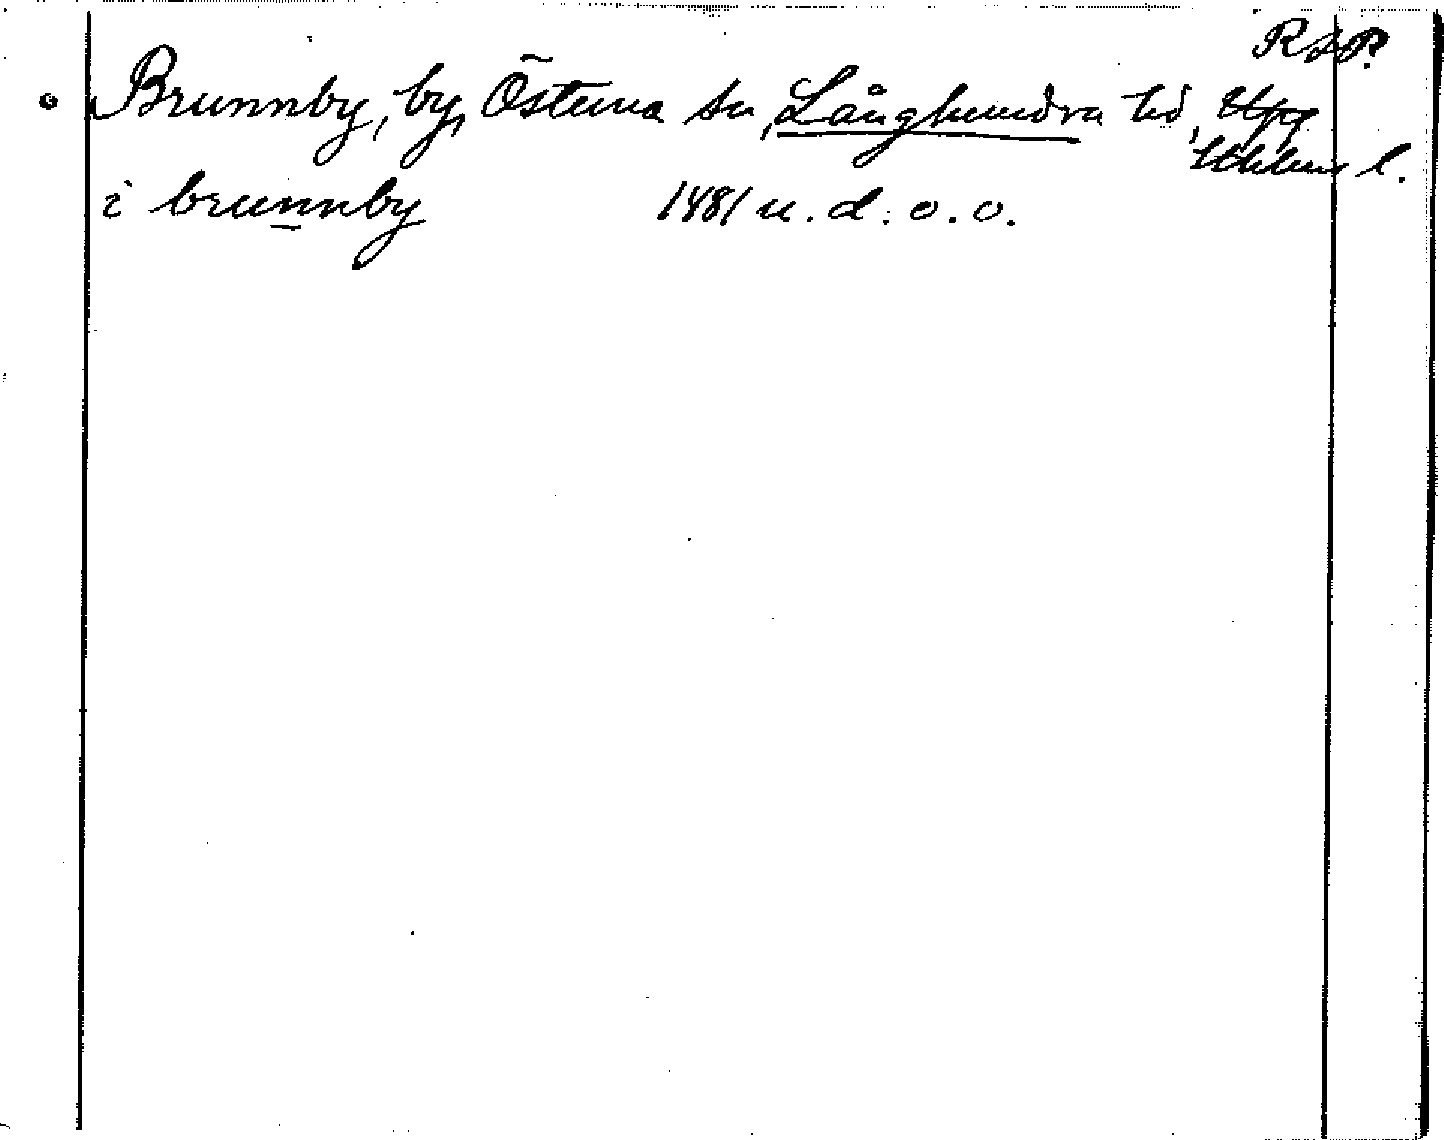 RAP.
Brunnby, by, Östuna sn, Långhundra hd, Upp
Sthlms l.
i brunnby 1481 u. d. o. o.